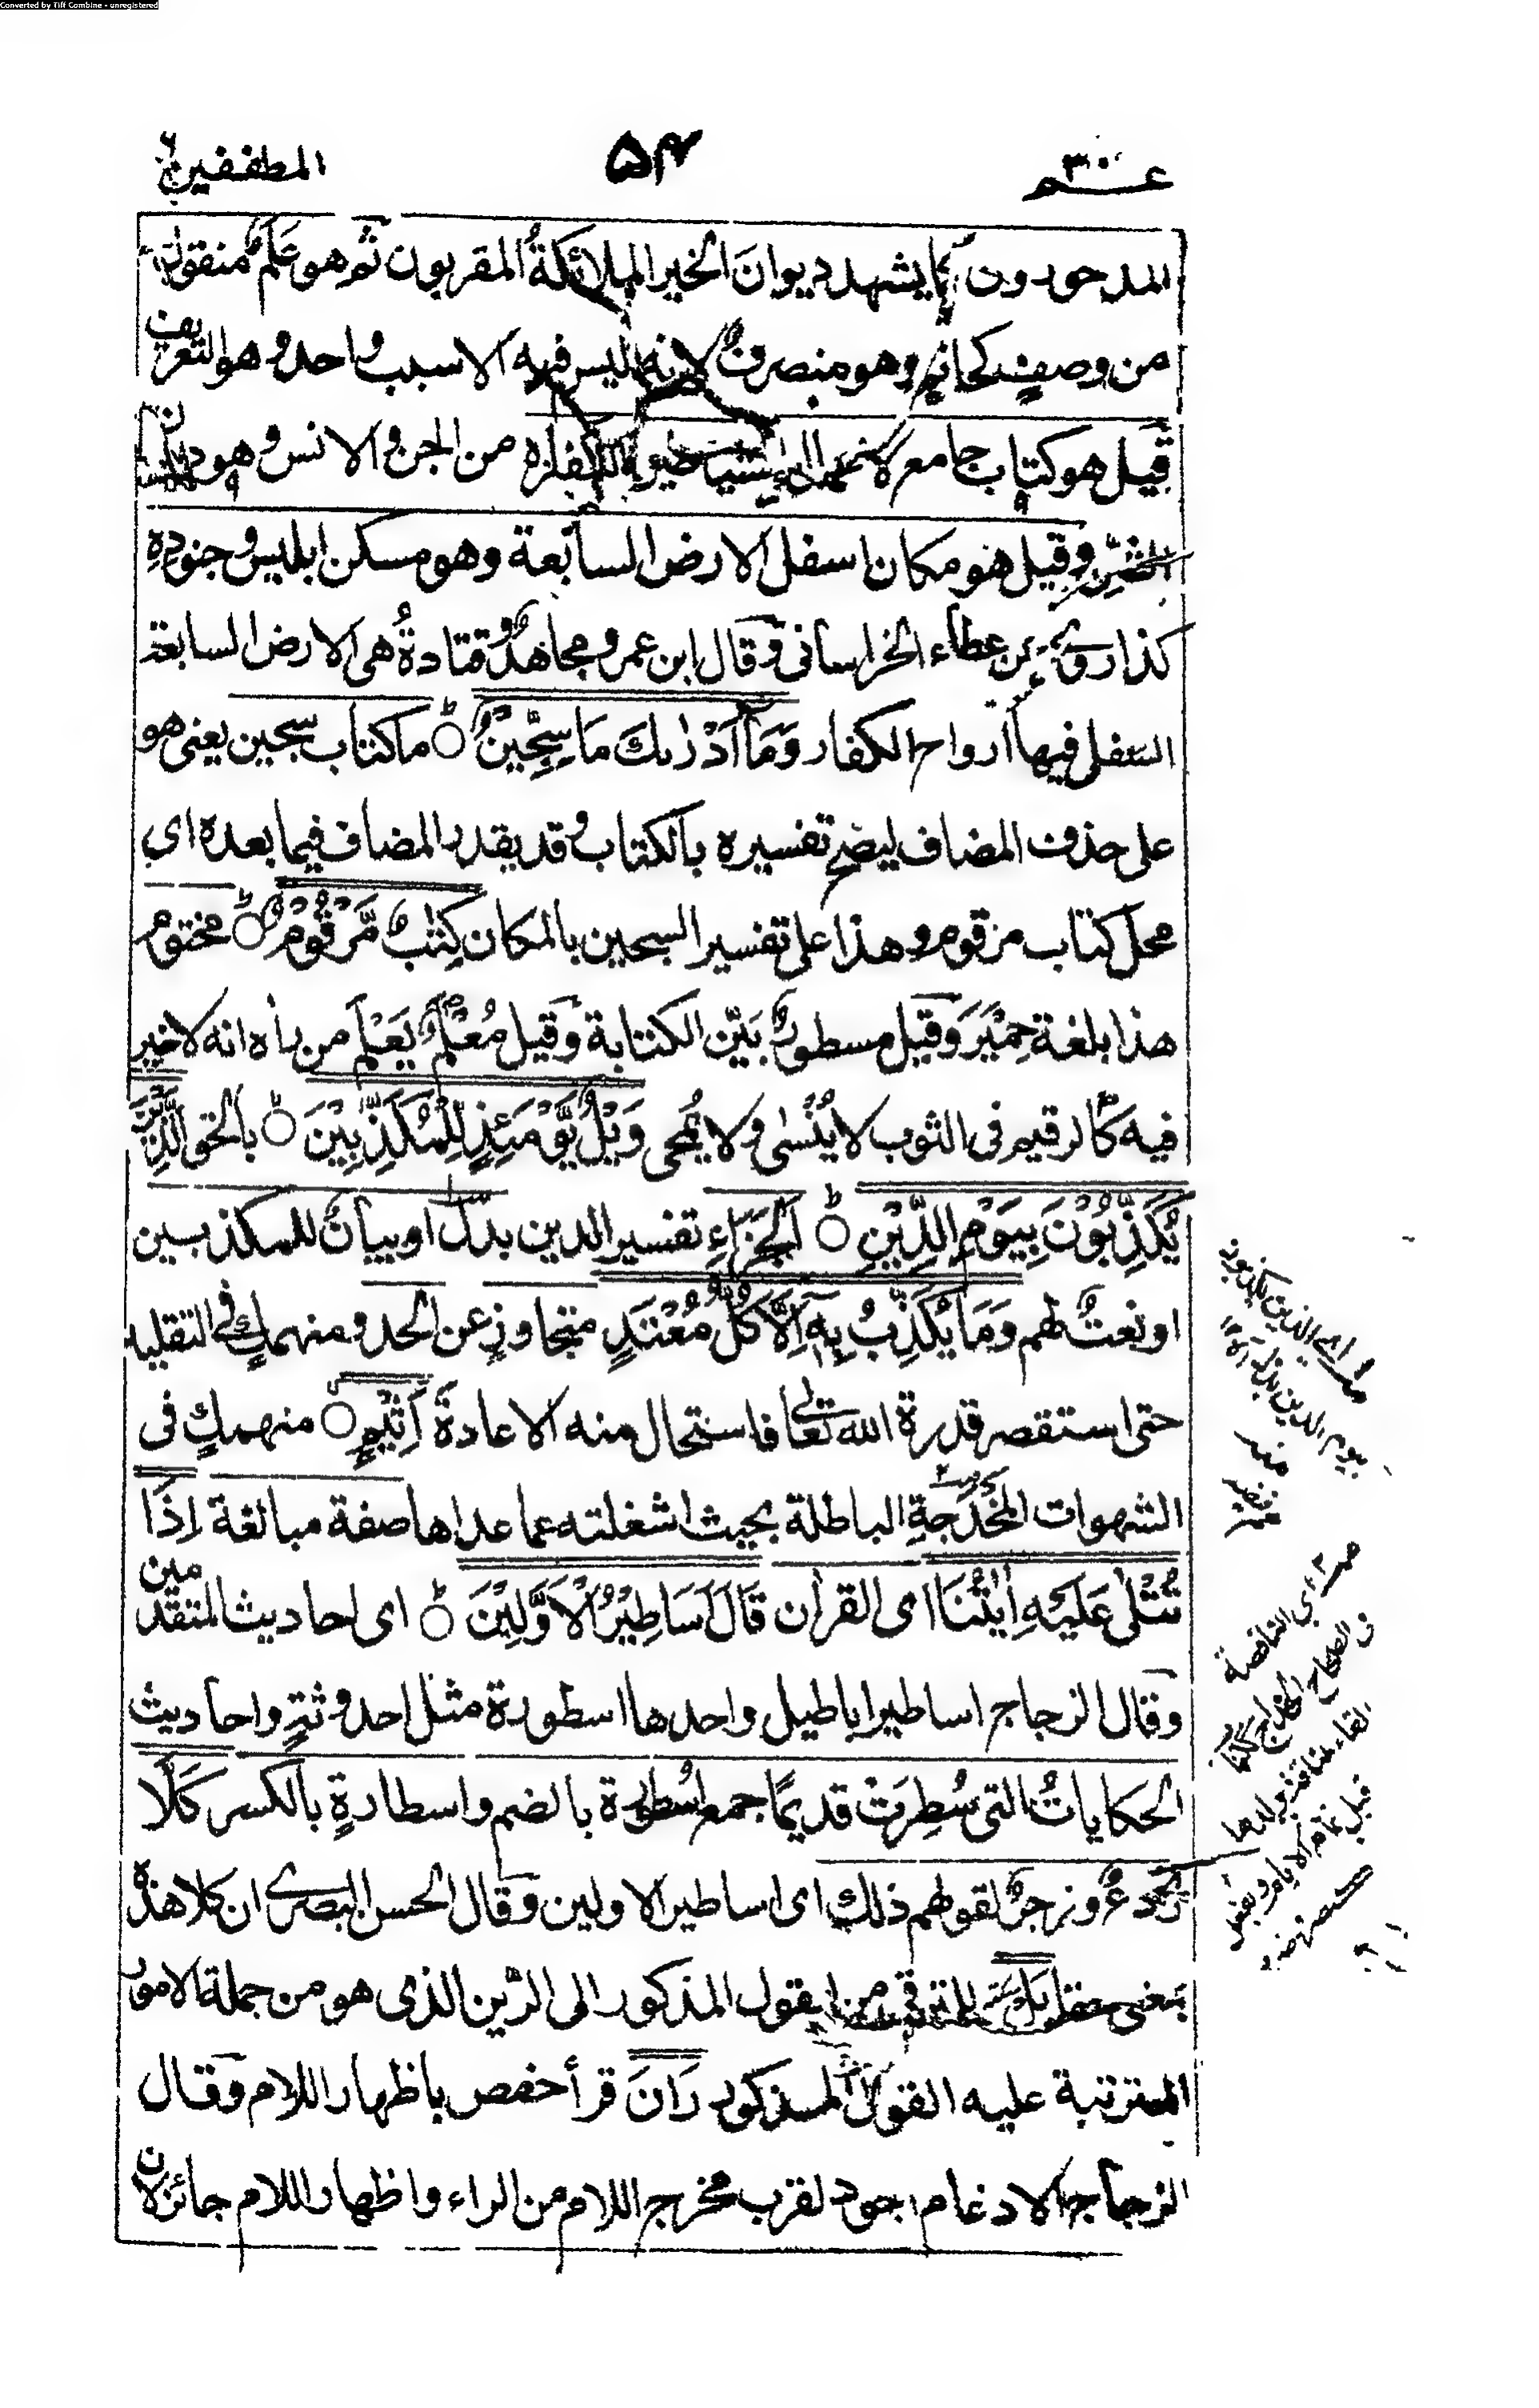 Converted by Tiff Combine - unregistered
عم ٣٠
٥٤
المطففين
المدحورون كما يشهد ديوانَ الخير الملائكةُ المقربون ثم هو عَلَمٌ منقول
من وصفٍ كحاتم وهو منصرفٌ لانه ليس فيه الا سبب واحد وهو التعريف
قيل هو كتاب جامع لاعمال الشياطين والكفرة من الجن والانس وهو ديوان
الشرِّ وقيل هو مكان اسفل الارض السابعة وهو مسكن ابليس وجنودهِ
كذا روى عن عطاء الخراسانى وقال ابن عمر ومجاهدٌ وقتادةُ هى الارض السابعة
السفلى فيها ارواح الكفار وَمَآ اَدْرٰىكَ مَا سِجِّيْنٌ ما كتاب سجين يعنى هو
على حذف المضاف ليضح تفسيره بالكتاب وقد يقدر المضاف فيما بعده اى
محل كتاب مرقوم وهذا على تفسير السجين بالمكان كِتٰبٌ مَّرْقُوْمٌ مختوم
هذا بلغة حِمْيَرَ وقيل مسطورٌ بَيّن الكتابة وقيل مُعْلَمٌ يَعْلَم من رأه انه لا خير
فيه كالرقيم فى الثوب لا يُنْسٰى ولا يُمحى وَيْلٌ يَّوْمَئِذٍ لِّلْمُكَذِّبِيْنَ بالحق الَّذِيْنَ
يُكَذِّبُوْنَ بِيَوْمِ الدِّيْنِ الجَزَاءِ تفسير الدين بدل او بيانٌ للمكذبين
او نعتٌ لهم وَمَا يُكَذِّبُ بِهٖٓ اِلَّا كُلُّ مُعْتَدٍ متجاوزٍ عن الحد ومنهمكٍ فى التقليد
حتى استقصر قدرة الله تعالى فاستحال منه الاعادة اَثِيْمٍ منهمكٍ فى
الشهوات المُخْدَجَةِ الباطلة بحيث اشغلته عما عداها صفة مبالغة اِذَا
تُتْلٰى عَلَيْهِ اٰيٰتُنَا اى القرأن قَالَ اَسَاطِيْرُ الْاَوَّلِيْنَ اى احاديث المتقدمين
وقال الزجاج اساطير اباطيل واحدها اسطورة مثل احدوثةٍ واحاديث
الحكاياتُ التى سُطِرَتْ قديمًا جمع اُسطورة بالضم واسطارةٍ بالكسر كَلَّا
رَدْعٌ وزجرٌ لقولهم ذلك اى اساطير الاولين وقال الحسن البصرى ان كلا هذه
بمعنى حقا بَلْ للترقى من القول المذكور الى الرَّين الذى هو من جملة الامور
المترتبة عليه القول المذكور رَانَ قرأ حفص باظهار اللام وقال
الزجاج الادغام اجود لقرب مخرج اللام من الراء واظهار اللام جائز لان
اى الذين يكذبون
بيوم الدين بدل
اى الناقصة
فى الصحاح